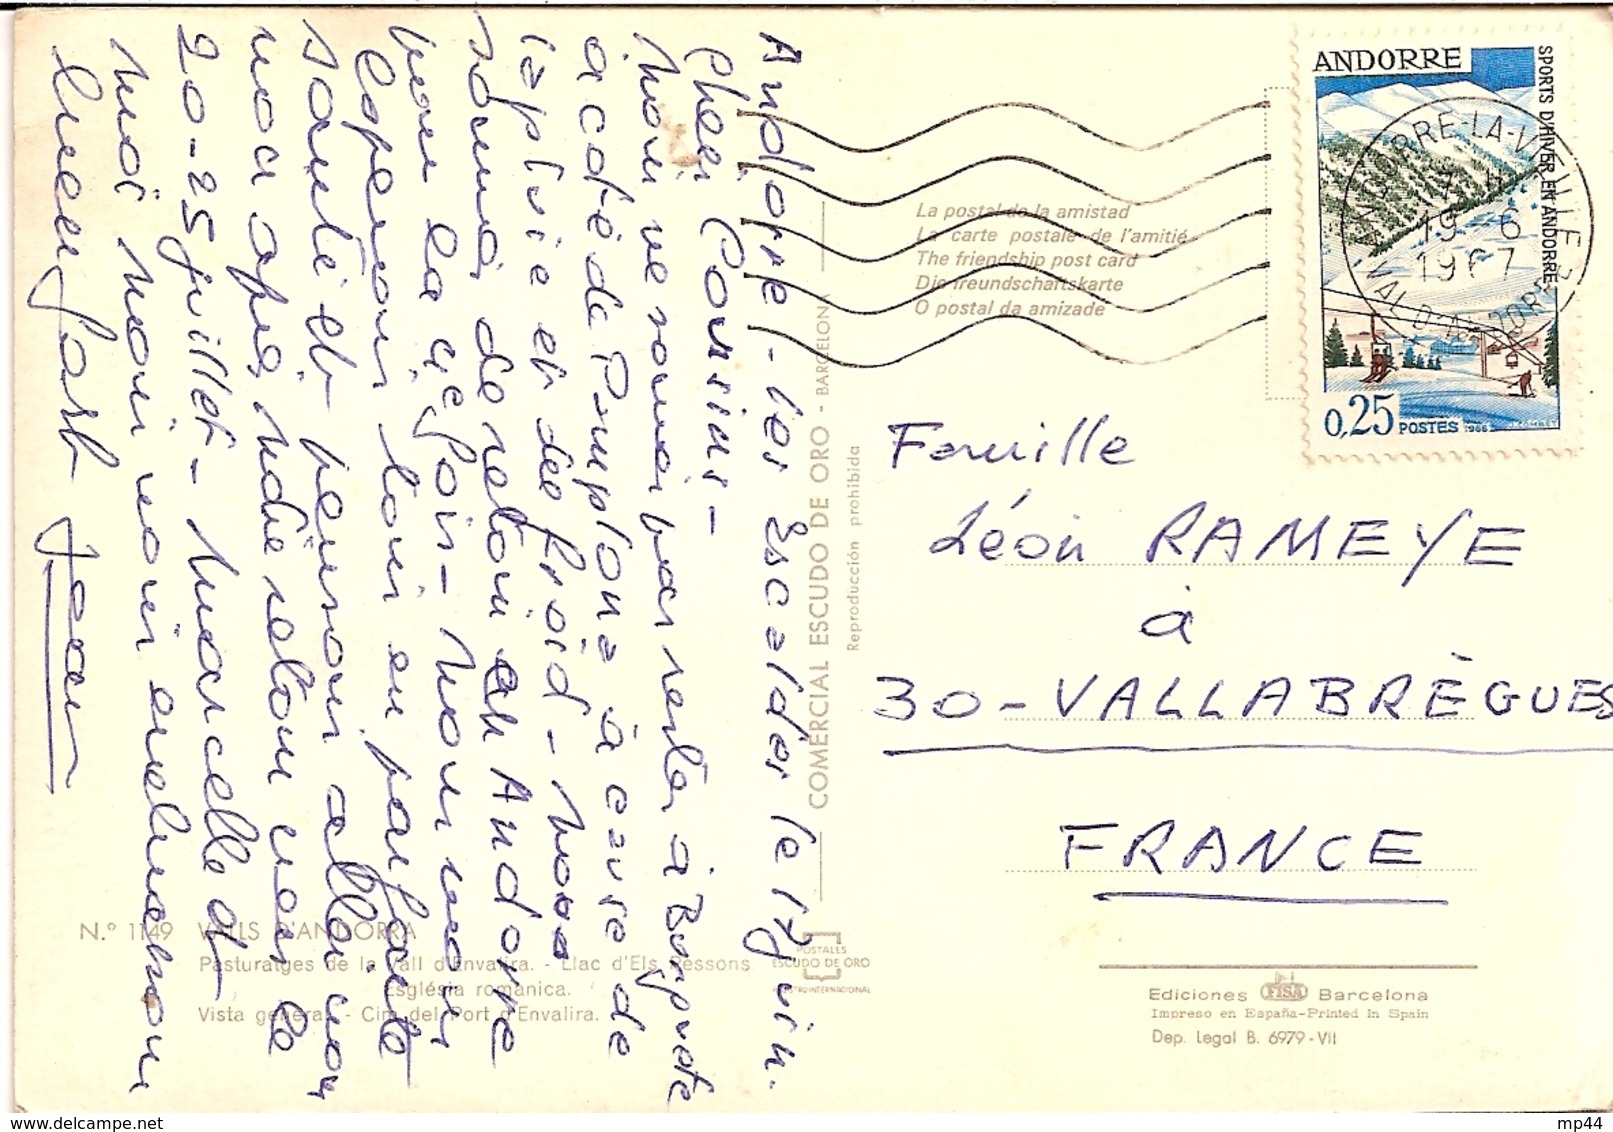 Andorre-les Escaldes le 17 juin.
Chers Cousins-
Nous ne sommes pas restés à Banyuls
à côté de Pamplona à cause de
la pluie et du froid - Nous
sommes de retour en Andorre
pour la fois - Nous vous
espérons tous en parfaite
santé et pensons aller vous
voir après notre retour vers le
20-25 juillet - Marcelle et
moi nous vous embrassons
bien fort Jean
ANDORRE
SPORTS D'HIVER EN ANDORRE
0,25 POSTES 1966 J.COMBET
ANDORRE-LA-VIEILLE
19-6
1967
VAL D'ANDORRE
La postal de la amistad
La carte postale de l'amitié
The friendship post card
Die freundschaftskarte
O postal da amizade
COMERCIAL ESCUDO DE ORO - BARCELONA
Reproducción prohibida
Famille
Léon RAMEYE
à
30-VALLABRÈGUES
FRANCE
N.º 1149 VALLS D'ANDORRA
Pasturatges de la Vall d'Envalira. - Llac d'Els Pessons
Església romànica.
Vista general - Cim del Port d'Envalira.
POSTALES
ESCUDO DE ORO
REGISTRO INTERNACIONAL
Ediciones FISA Barcelona
Impreso en España-Printed in Spain
Dep. Legal B. 6979-VII
https://www.delcampe.net
mp44